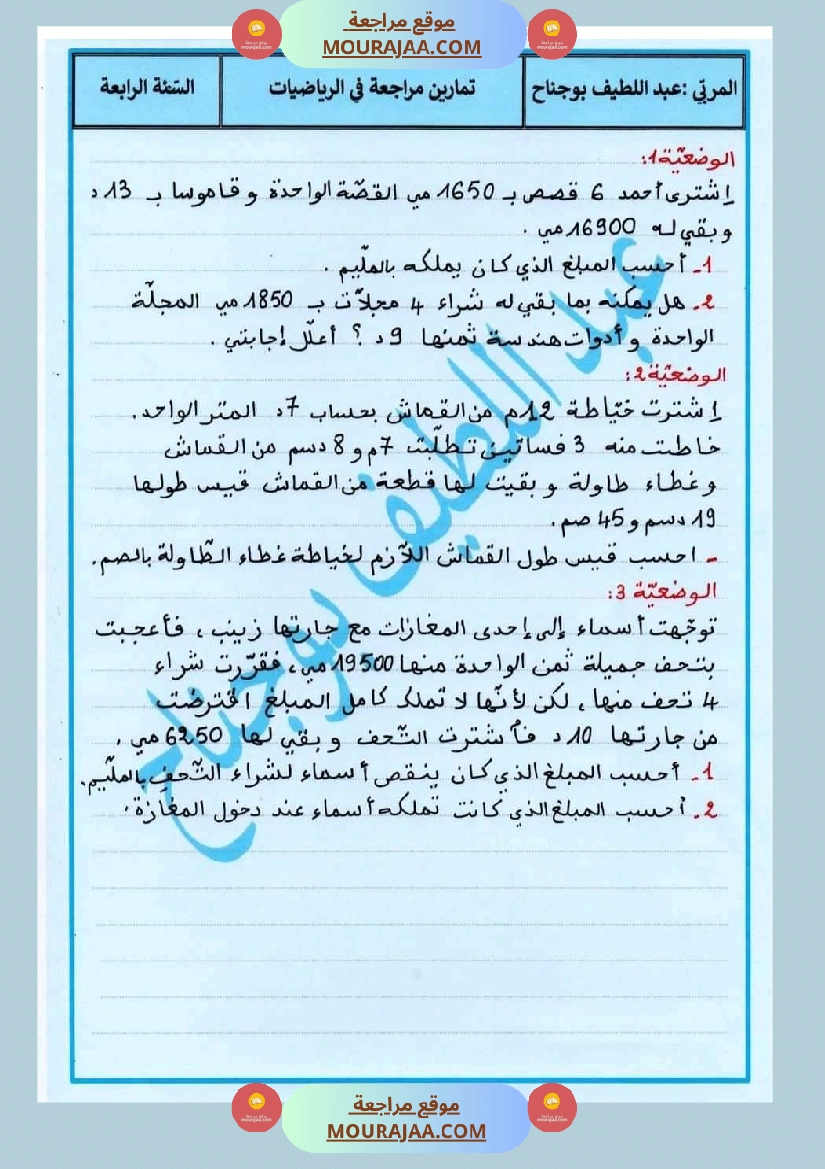 موقع مراجعة
MOURAJAA.COM
المربّي :عبد اللطيف بوجناح
تمارين مراجعة في الرياضيات
السّنة الرابعة
الوضعيّة1:
إشترى أحمد 6 قصص بـ 1650 مي القصّة الواحدة و قاموسا بـ 13 د
و بقي له 16900 مي .
1- أحسب المبلغ الذي كان يملكه بالملّيم .
2- هل يمكنه بما بقي له شراء 4 مجلاّت بـ 1850 مي المجلّة
الواحدة و أدوات هندسة ثمنها 9 د ؟ أعلّل إجابتي .
الوضعيّة 2:
إشترت خيّاطة 12م من القماش بحساب 7د المتر الواحد.
خاطت منه 3 فساتين تطلّبت 7م و 8 دسم من القماش
و غطاء طاولة و بقيت لها قطعة من القماش قيس طولها
19 دسم و 45 صم.
- احسب قيس طول القماش اللاّزم لخياطة غطاء الطّاولة بالصم.
الوضعيّة 3:
توجّهت أسماء إلى إحدى المغازات مع جارتها زينب ، فأعجبت
بتحف جميلة ثمن الواحدة منها 19500 مي ، فقرّرت شراء
4 تحف منها ، لكن لأنّها لا تملك كامل المبلغ اقترضت
من جارتها 10 د فاشترت التّحف و بقي لها 6250 مي .
1- أحسب المبلغ الذي كان ينقص أسماء لشراء التّحف بالملّيم.
2- أحسب المبلغ الذي كانت تملكه أسماء عند دخول المغازة .
عبد اللطيف بوجناح
موقع مراجعة
MOURAJAA.COM